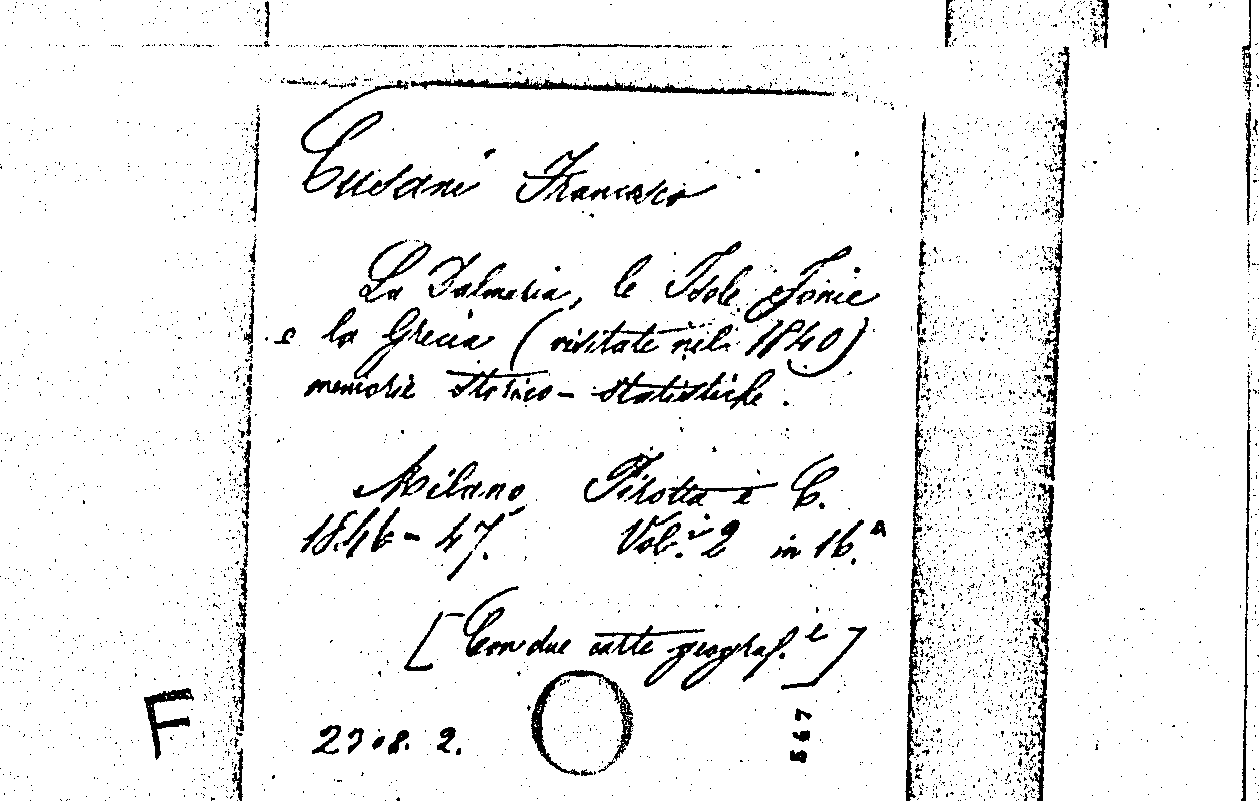 Cusani Francesco
La Dalmazia, le Isole Jonie
e la Grecia (visitate nel 1840)
memorie storico-statistiche.
Milano, Pirotta e C.
1846-47. Vol.i 2 in 16.o
[Con due carte geograf.e]
F
567